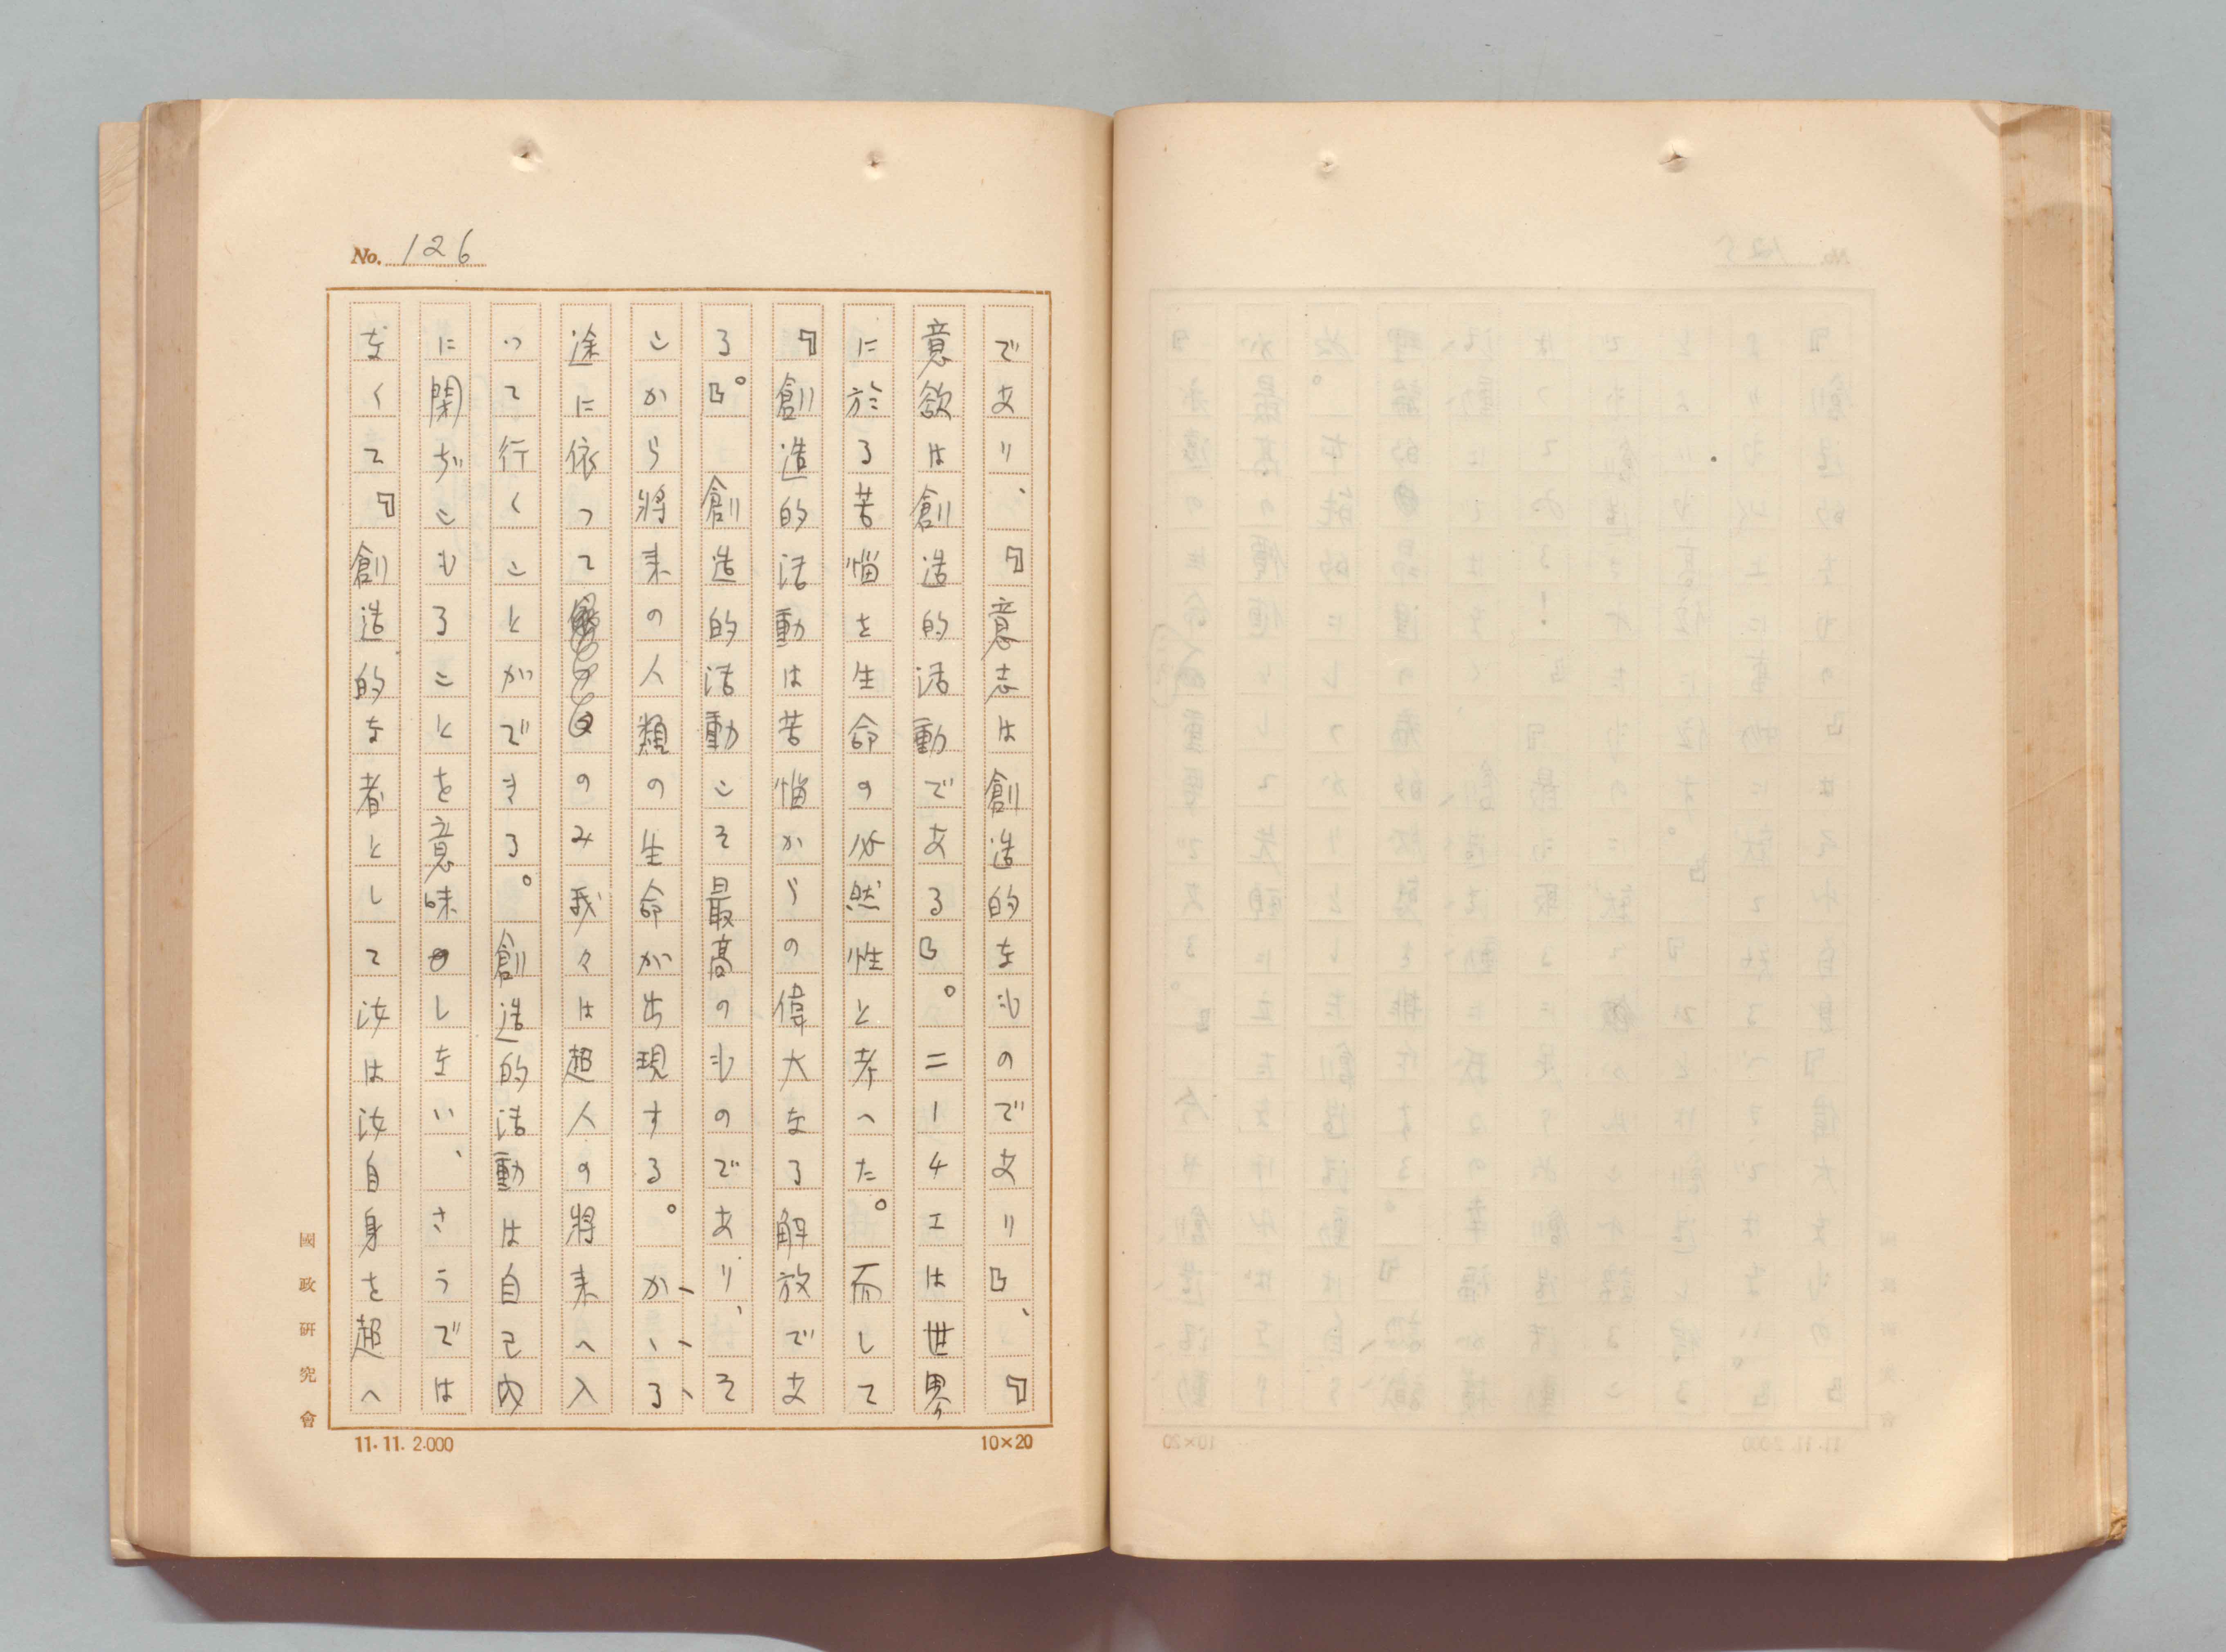 No. 126
であり、『意志は創造的なものであり』、『
意欲は創造的活動である』。ニーチエは世界
に於る苦惱を生命の必然性と考へた。而して
『創造的活動は苦惱からの偉大なる解放であ
る』。創造的活動こそ最高のものであり、そ
こから將来の人類の生命が出現する。かゝる
途に依つてのみ我々は超人の將来へ入
つて行くことができる。創造的活動は自己内
に閉ぢこもることを意味しない、さうでは
なくて『創造的な者として汝は汝自身を超へ
國政研究會
11.11.2.000
10×20